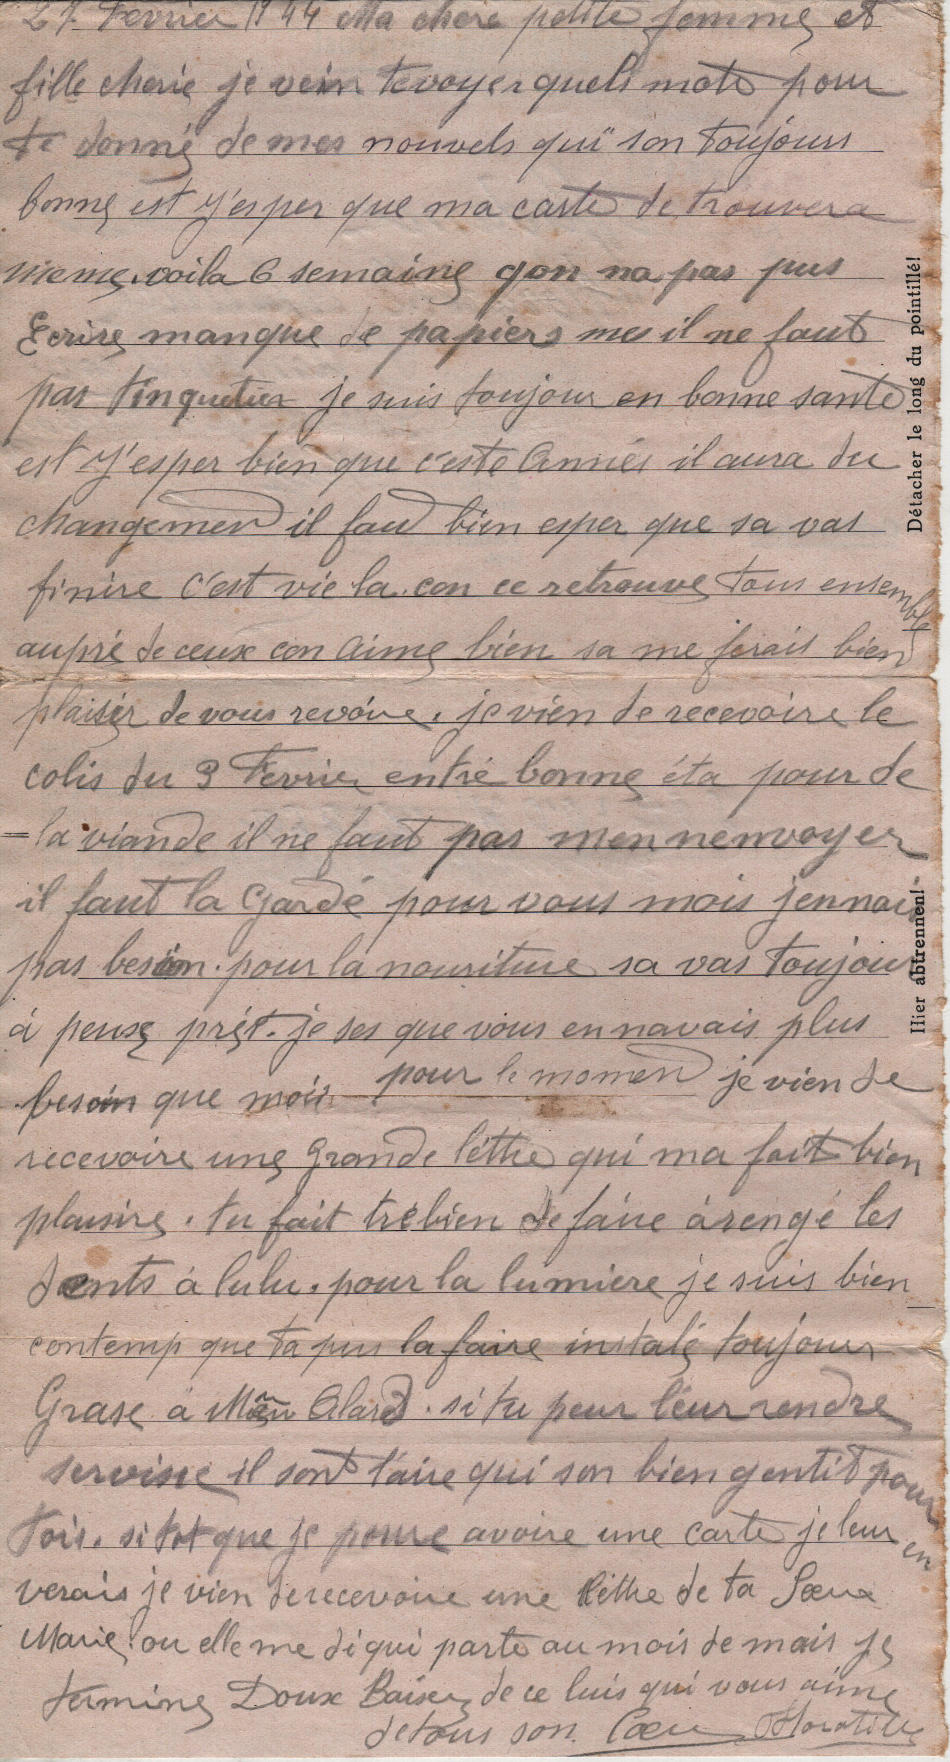 27 Fevrier 1944 Ma chere petite femme et
fille cherie je vein tevoyer quels mots pour
te donné de mes nouvels qui son toujours
bonne est j'esper que ma carte de trouvera
meme. voila 6 semaine qon na pas pus
Ecrire manque de papiers mes il ne faut
pas tinquetier je suis toujour en bonne santé
est j'esper bien que c'este Année il aura du
changemend il faud bien esper que sa vas
finire c'est vie la. con ce retrouve tous ensemble
aupré de ceux con aime bien sa me ferait bien
plaisir de vous revoire. je vien de recevoire le
colis du 3 Fevrier entré bonne éta pour de
la viande il ne faut pas mennenvoyer
il faut la Gardé pour vous mois jennais
pas besoin. pour la nouriture sa vas toujour
à peuse prét. je ses que vous ennavais plus
besoin que mois pour le momend je vien de
recevoire une grande léttre qui ma fait bien
plaisire. tu fait trébien de faire àrengé les
dents à lulu. pour la lumiere je suis bien
contemp que ta pus la faire instalé toujours
Grase à Alard. si tu peur léur rendre
servisie il sont l'aire qui son bien gentit pour
tois. si tot que je poure avoire une carte je leur en
verais je vien derecevoire une léttre de ta Sœure
Marie. ou elle me di qui parte au mois de mais je
termine Doux Baiser de ce luis qui vous aime
detous son Cœur
Détacher le long du pointillé!
Hier abtrennen!